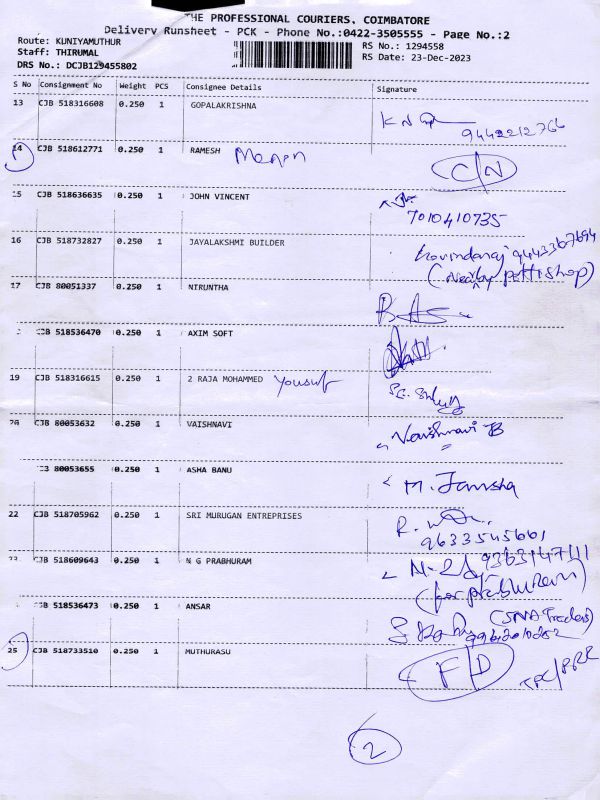 THE PROFESSIONAL COURIERS, COIMBATORE
Delivery Runsheet - PCK - Phone No.:0422-3505555 - Page No.:2
Route: KUNIYAMUTHUR
RS No.: 1294558
Staff: THIRUMAL
RS Date: 23-Dec-2023
DRS No.: DCJB129455802
S No Consignment No Weight PCS Consignee Details Signature
13 CJB 518316608 0.250 1 GOPALAKRISHNA
9442212766
14 CJB 518612771 0.250 1 RAMESH Menon C/N
15 CJB 518636635 0.250 1 JOHN VINCENT
7010410735
16 CJB 518732827 0.250 1 JAYALAKSHMI BUILDER
Govindaraj 9443367694
(Nearby petti shop)
17 CJB 80051337 0.250 1 NIRUNTHA
CJB 518536470 0.250 1 AXIM SOFT
19 CJB 518316615 0.250 1 2 RAJA MOHAMMED Yousuf
20 CJB 80053632 0.250 1 VAISHNAVI Vaishnavi B
80053655 0.250 1 ASHA BANU M. Jamsha
22 CJB 518705962 0.250 1 SRI MURUGAN ENTREPRISES
9633545661
CJB 518609643 0.250 1 N G PRABHURAM 9363147111
(for prabhuram)
CJB 518536473 0.250 1 ANSAR
(SNA Traders)
25 CJB 518733510 0.250 1 MUTHURASU F/D
2